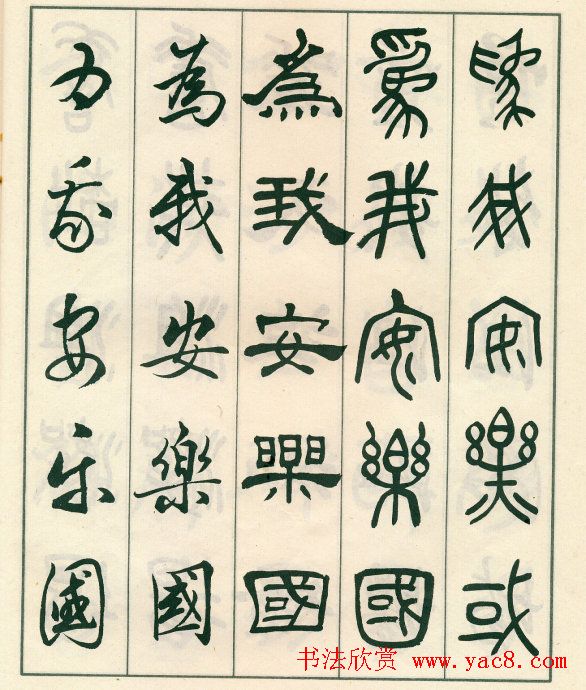 爲我安樂或
爲我安樂國
為我安樂國
為我安樂國
为我安乐國
书法欣赏 www.yac8.com